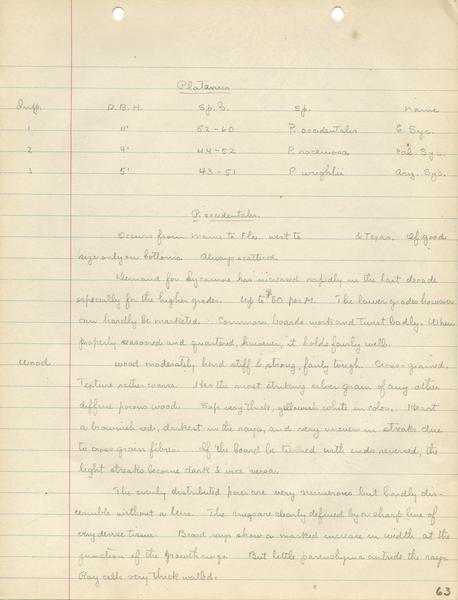 Platanus
D.B.H. Sp.G. Sp. Name
1 11' 52-60 P. occidentalis E. Syc.
2 9' 44-52 P. racemosa Cal. Syc.
3 5' 43-51 P. wrightii Ariz. Syc.
P. occidentalis.
Occurs from Maine to Fla. west to & Texas. Of good
size only on bottoms. Always scattered.
Demand for Sycamore has increased rapidly in the last decade
especially for the higher grades. Up to $50 per M. The lower grades however
can hardly be marketed. Common boards work and twist badly. When
properly seasoned and quartered, however, it holds fairly well.
Wood Wood moderately hard stiff & strong, fairly tough. Cross-grained.
Texture rather coarse. Has the most striking silver grain of any other
diffuse porous wood. Sap very thick, yellowish white in color. Heart
a brownish red, darkest in the rays, and very uneven in streaks due
to cross grain fibres. If the board be turned with ends reversed, the
light streaks become dark & vice versa.
The evenly distributed pores are very numerous but hardly dis-
cernible without a lens. The rings are clearly defined by a sharp line of
very dense tissue. Broad rays show a marked increase in width at the
junction of the growth rings. But little parenchyma outside the rays
Ray cells very thick walled.
63